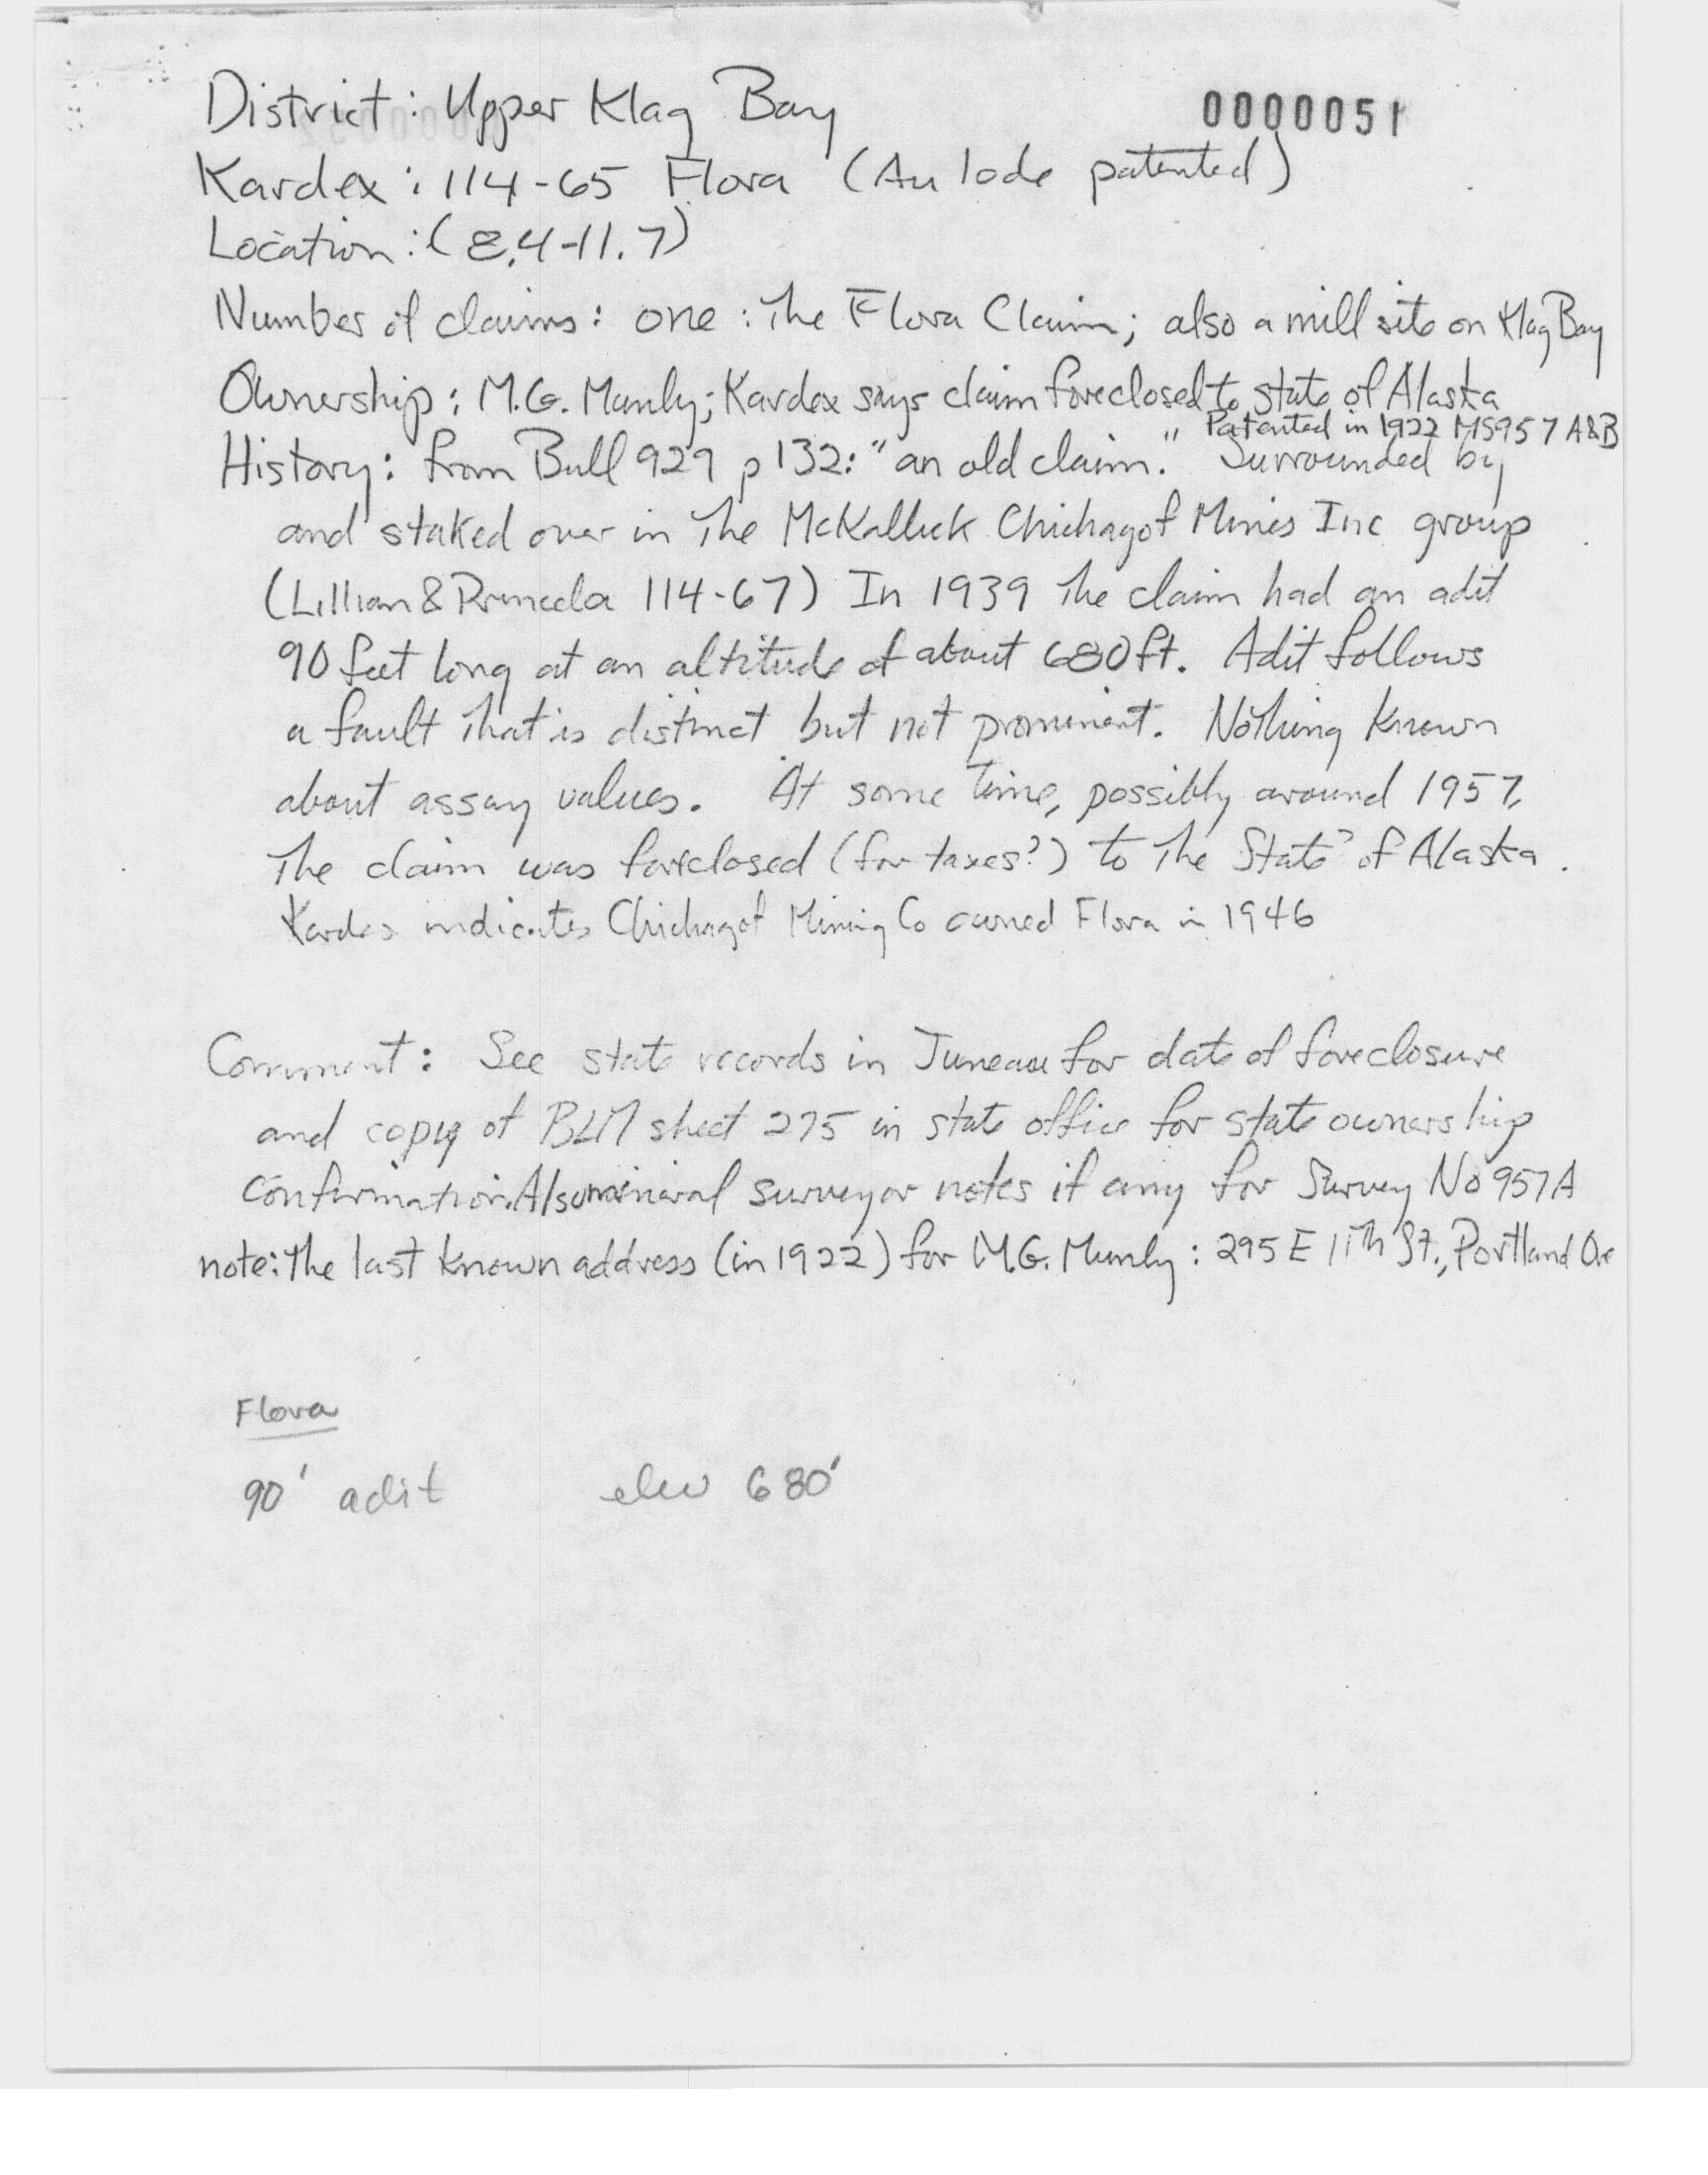 District: Upper Klag Bay
0000051
Kardex: 114-65 Flora (Au lode patented)
Location: (8.4-11.7)
Number of claims: one: The Flora Claim; also a mill site on Klag Bay
Ownership: M.G. Munly; Kardex says claim foreclosed to state of Alaska
Patented in 1922 MS957 A&B
History: from Bull 929 p 132: "an old claim." Surrounded by
and staked over in The McKallick Chichagof Mines Inc group
(Lillian & Princela 114-67) In 1939 The claim had an adit
90 feet long at an altitude of about 680 ft. Adit follows
a fault That is distinct but not prominent. Nothing Known
about assay values. At some Time, possibly around 1957,
The claim was foreclosed (for taxes?) to The State of Alaska.
Kardex indicates Chichagof Mining Co owned Flora in 1946
Comment: See state records in Juneau for date of foreclosure
and copy of BLM sheet 275 in state office for state ownership
confirmation. Also mineral surveyor notes if any for Survey No 957A
note: The last known address (in 1922) for M.G. Munly: 295 E 11th St., Portland Ore
Flora
90' adit elev 680'